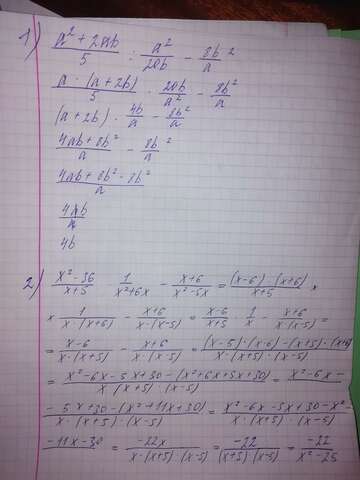 1) (a² + 2ab)/5 : a²/20b - 8b²/a
(a · (a + 2b))/5 · 20b/a² - 8b²/a
(a + 2b) · 4b/a - 8b²/a
(4ab + 8b²)/a - 8b²/a
(4ab + 8b² - 8b²)/a
4ab/a
4b
2) (x² - 36)/(x + 5) · 1/(x² + 6x) - (x + 6)/(x² - 5x) = ((x - 6) · (x + 6))/(x + 5) ×
× 1/(x · (x + 6)) - (x + 6)/(x · (x - 5)) = (x - 6)/(x + 5) · 1/x - (x + 6)/(x · (x - 5)) =
= (x - 6)/(x · (x + 5)) - (x + 6)/(x · (x - 5)) = ((x - 5) · (x - 6) - (x + 5) · (x + 6))/(x · (x + 5) · (x - 5))
= (x² - 6x - 5x + 30 - (x² + 6x + 5x + 30))/(x · (x + 5) · (x - 5)) = x² - 6x -
(- 5x + 30 - (x² + 11x + 30))/(x · (x + 5) · (x - 5)) = (x² - 6x - 5x + 30 - x² -)/(x · (x + 5) · (x - 5))
- 11x - 30 = -22x/(x · (x + 5) · (x - 5)) = -22/((x + 5) · (x - 5)) = -22/(x² - 25)